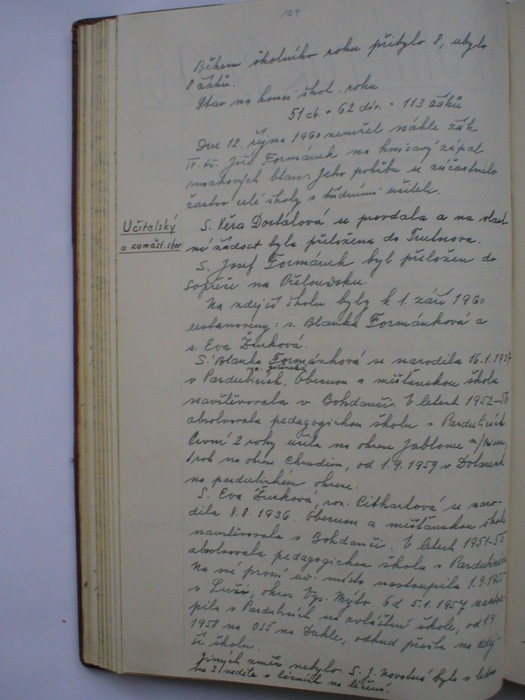 129
Během školního roku přibylo 8, ubylo
8 žáků.
Stav na konci škol. roku
51 ch + 62 dív. = 113 žáků
Dne 12. října 1960 zemřel náhle žák
IV. tř. Jiří Formánek na hnisavý zápal
mozkových blan. Jeho pohřbu se zúčastnilo
žactvo celé školy s třídními učiteli.
Učitelský
a zaměst. sbor
S. Věra Dostálová se provdala a na vlast-
ní žádost byla přeložena do Trutnova.
S. Josef Formánek byl přeložen do
Sopřeče na Přeloučsku.
Na zdejší školu byly k 1. září 1960
ustanoveny: s. Blanka Formánková a
s. Eva Žurková.
S. Blanka Formánková se narodila 16.1.1937
v Pardubicích. Obecnou a měšťanskou školu
navštěvovala v Bohdanči. V letech 1952-56
absolvovala pedagogickou školu v Pardubicích
První 2 roky učila na okrese Jablonec n/
1 rok na okrese Chrudim, od 1.9.1959 v Dolanech
na pardubickém okrese.
S. Eva Žurková, roz. Citharlová se naro-
dila 8.8.1936. Obecnou a měšťanskou školu
navštěvovala v Bohdanči. V letech 1951-55
absolvovala pedagogickou školu v Pardubicích
Na své první uč. místo nastoupila 1.9.1955
v okres Vys. Mýto. Od 5.1.1957
pila v Pardubicích na zvláštní škole, od 1.9.
1958 na OSŠ na odkud přešla na zdej-
ší školu.
Jiných změn nebylo. S. J. Novotná byla v
na 3 neděle v lázních na léčení.